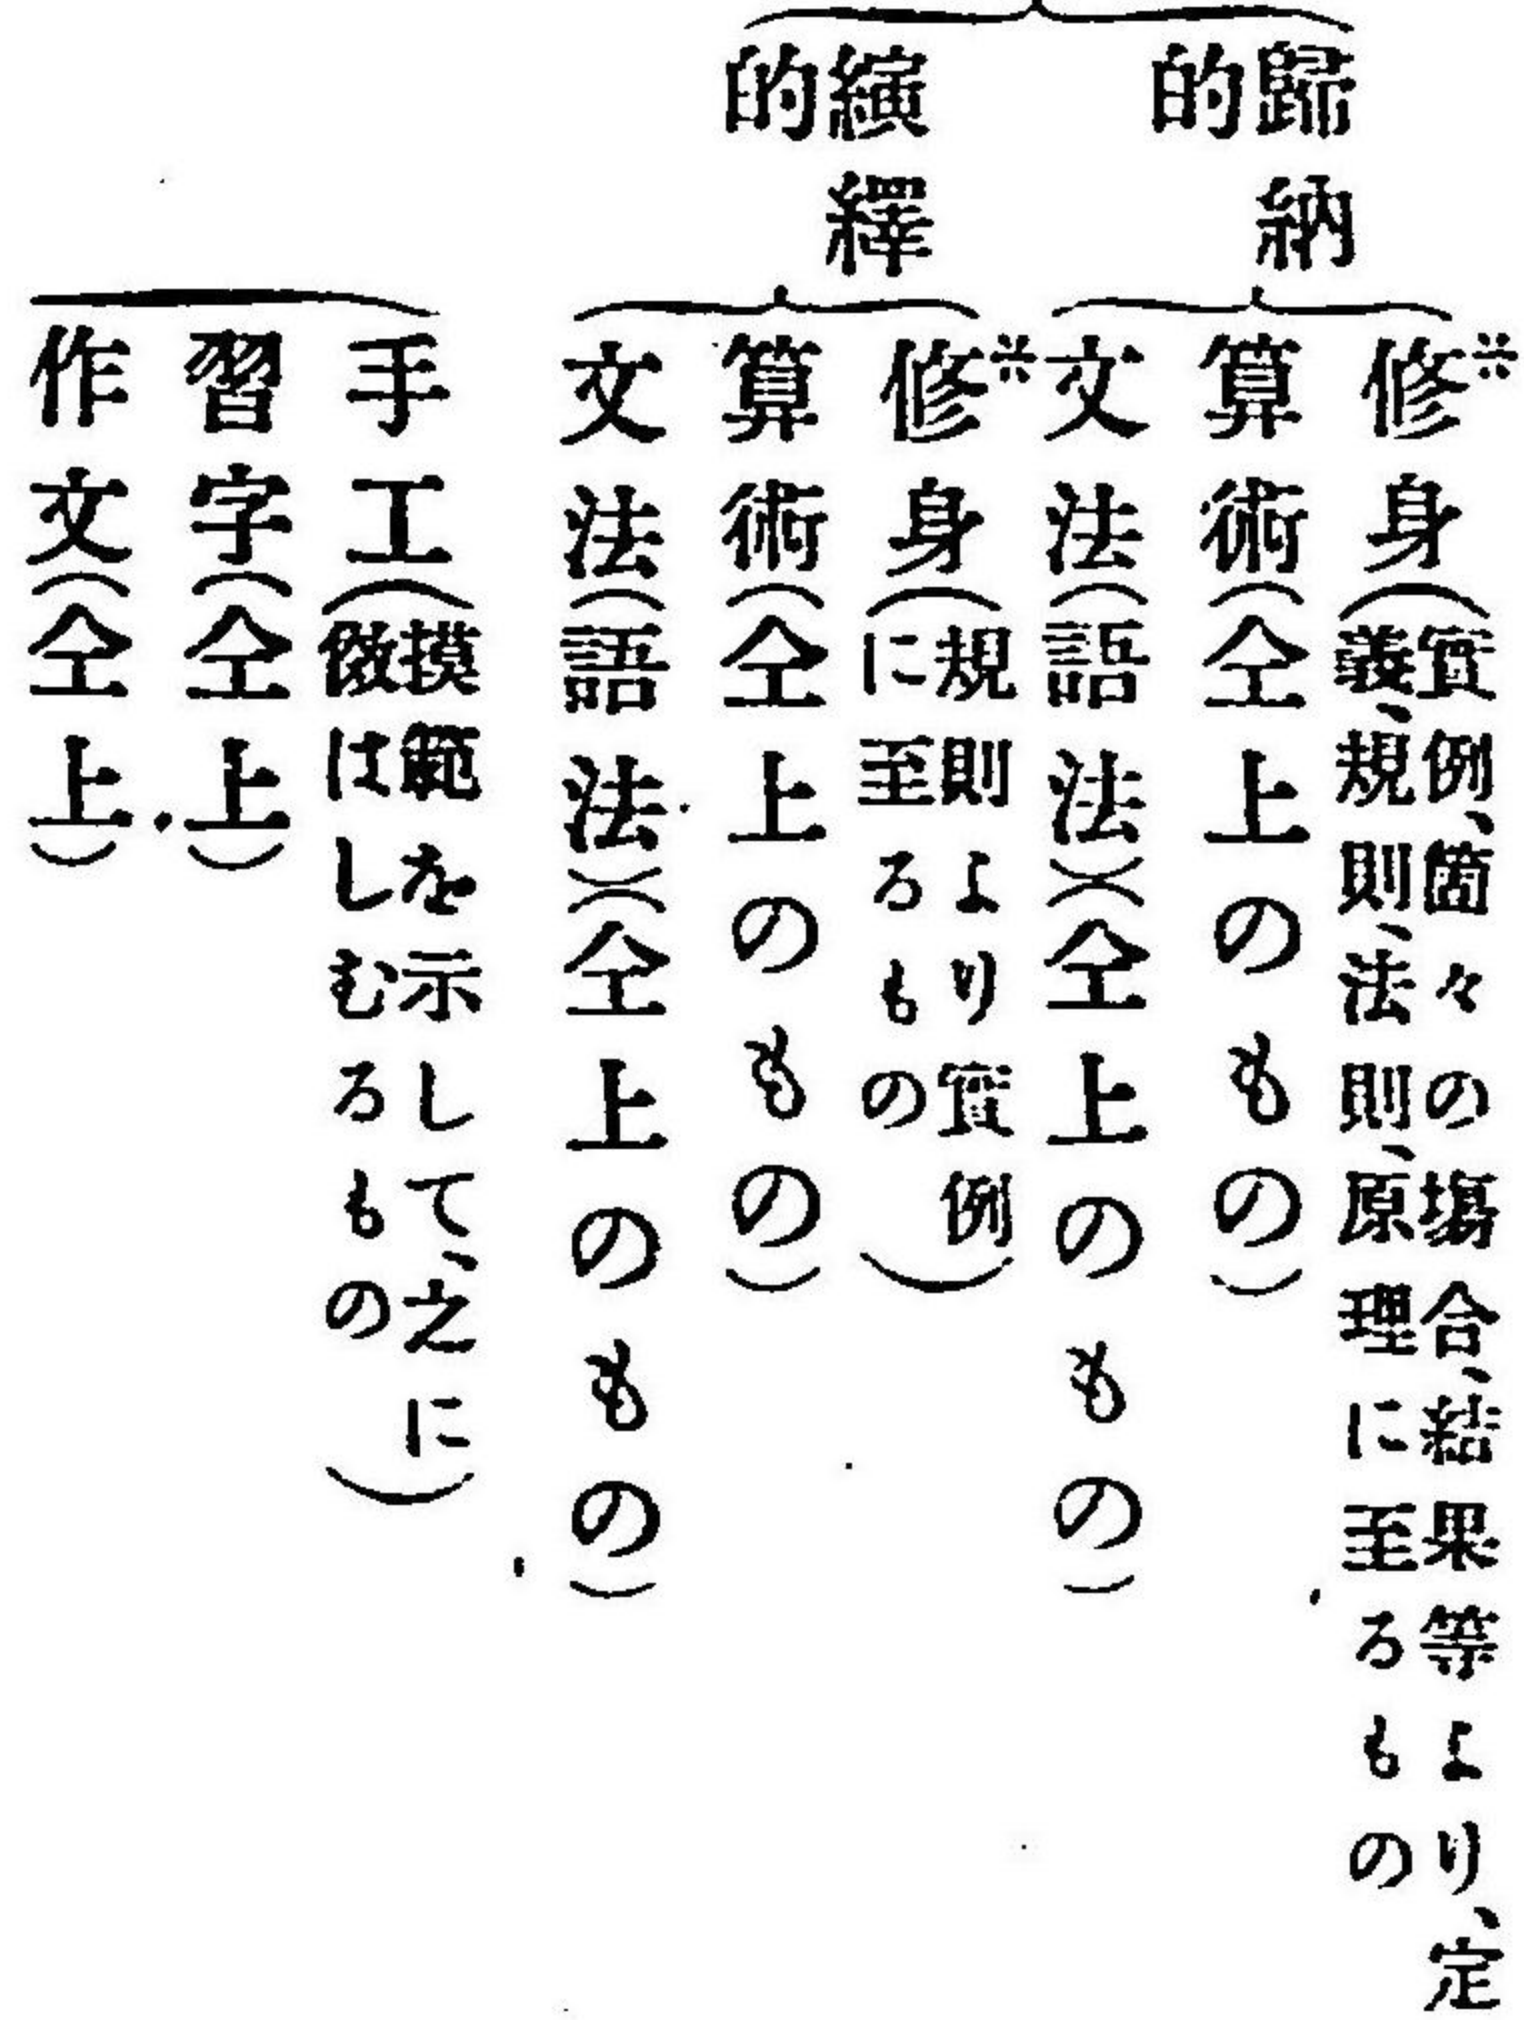 歸納的
※修身(實例、箇々の塲合、結果等より、定義、規則、法則、原理に至るもの)
算術(仝上のもの)
文法(語法)(仝上のもの)
縯繹的
※修身(規則より實例に至るもの)
算術(仝上のもの)
文法(語法)(仝上のもの)
手工(摸範を示して、之に倣はしむるもの)
習字(仝上)
作文(仝上)